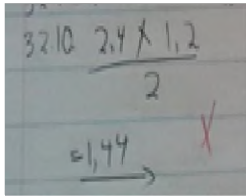 3210 2,4 X 1,2
2
=1,44